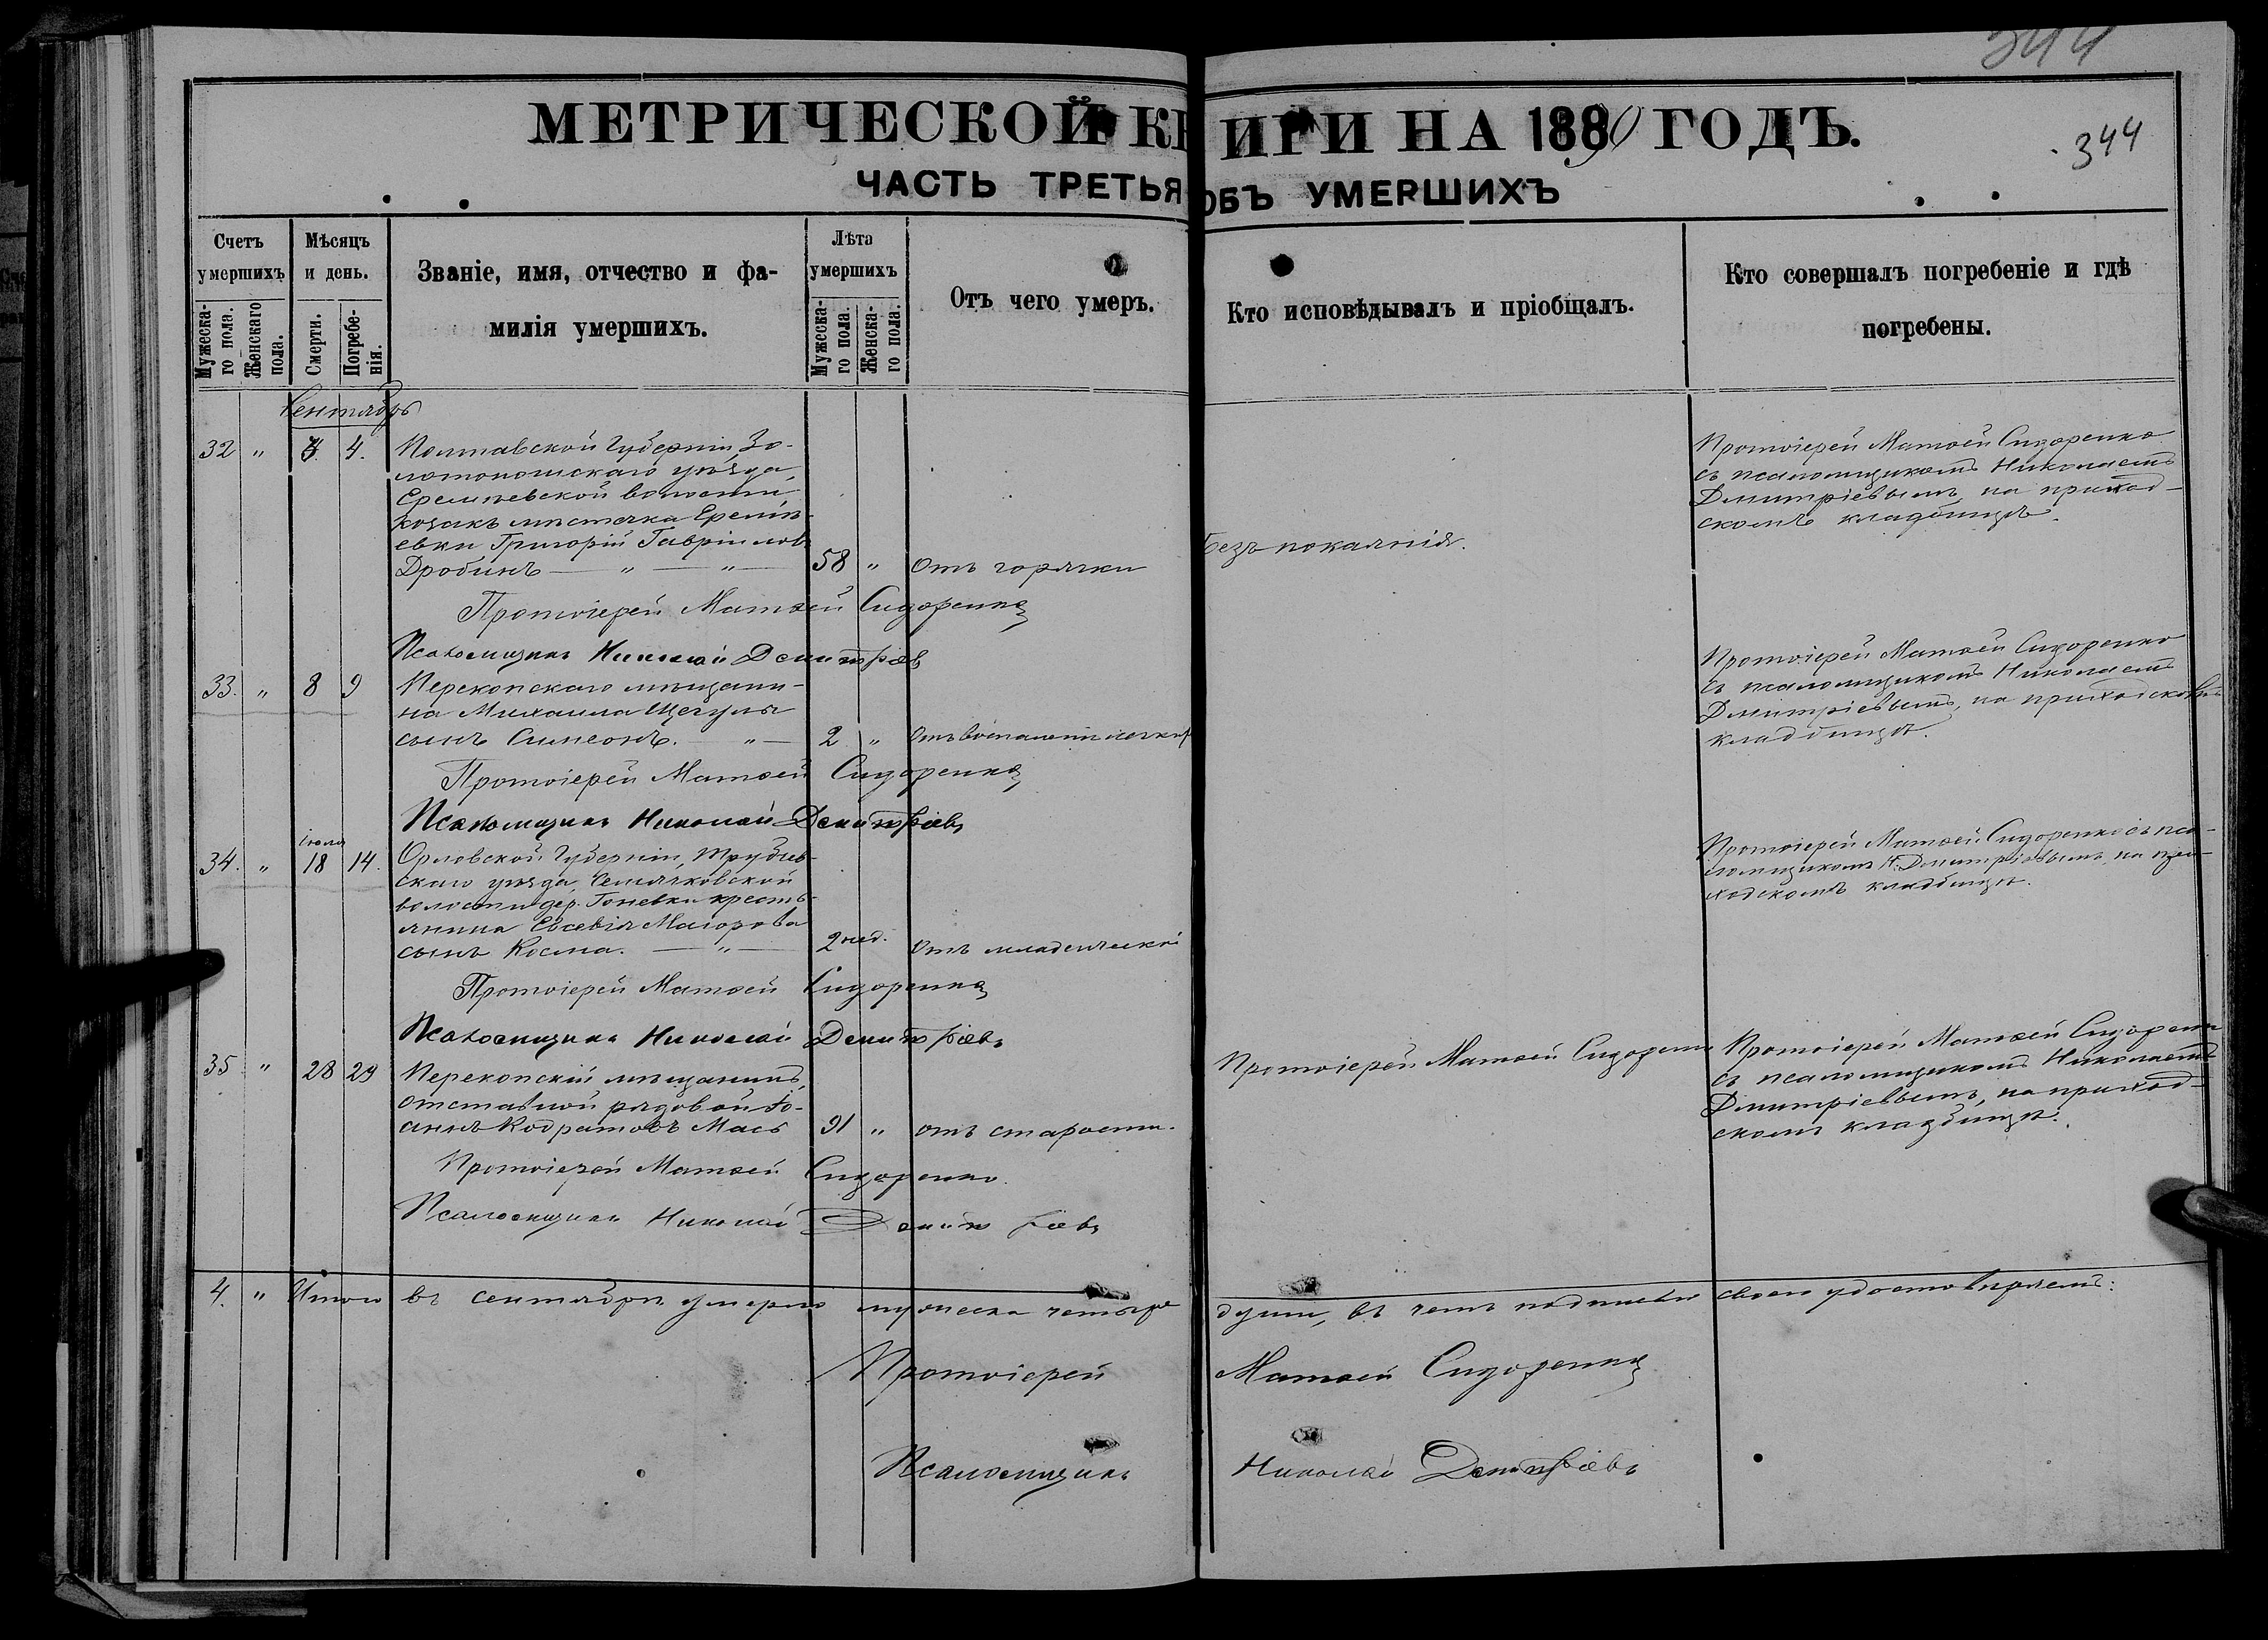 344
МЕТРИЧЕСКОЙ КНИГИ НА 1890 ГОДЪ.
344
ЧАСТЬ ТРЕТЬЯ ОБЪ УМЕРШИХЪ
Счетъ умершихъ
Мужеска-го пола.
Женскаго пола.
Мѣсяцъ и день.
Смерти.
Погребе-нія.
Званіе, имя, отчество и фа-
милія умершихъ.
Лѣта умершихъ
Мужеска-го пола.
Женска-го пола.
Отъ чего умеръ.
Кто исповѣдывалъ и пріобщалъ.
Кто совершалъ погребеніе и гдѣ
погребены.
Сентябрь
32 " 3. 4. Полтавской Губерніи, Зо-
лотоношскаго уѣзда,
Еремѣевской волости,
козакъ мѣстечка Еремѣ-
евки Григорій Гавріиловъ
Дробинъ — " — " — 58 " отъ горячки
Безъ покаянія.
Протоіерей Матѳей Сидоренко
съ псаломщикомъ Николаемъ
Дмитріевымъ, на приход-
скомъ кладбищѣ.
Протоіерей Матѳей Сидоренко
Псаломщикъ Николай Дмитріевъ
33. " 8 9 Перекопскаго мѣщани-
на Михаила Щегула
сынъ Симеонъ. — " — 2 " отъ воспаленія легких
Протоіерей Матѳей Сидоренко
съ псаломщикомъ Николаемъ
Дмитріевымъ, на приходскомъ
кладбищѣ.
Протоіерей Матѳей Сидоренко
Псаломщикъ Николай Дмитріевъ
Іюля
34. " 18 14. Орловской Губерніи, Трубчев-
скаго уѣзда, Семячковской
волости дер. Гоневки кресть-
янина Евсевія Маіорова
сынъ Косма. — " — 2 нед. отъ младенческой
Протоіерей Матѳей Сидоренко съ пса-
ломщикомъ Н. Дмитріевымъ, на при-
ходскомъ кладбищѣ.
Протоіерей Матѳей Сидоренко
Псаломщикъ Николай Дмитріевъ
35 " 28 29 Перекопскій мѣщанинъ,
отставной рядовой Іо-
аннъ Кодратовъ Мась 91 " отъ старости.
Протоіерей Матѳей Сидоренко
Протоіерей Матѳей Сидоренко
съ псаломщикомъ Николаемъ
Дмитріевымъ, на приход-
скомъ кладбищѣ.
Протоіерей Матѳей Сидоренко
Псаломщикъ Николай Дмитріевъ
4. " Итого въ сентябрѣ умерло мужеска четыре души, въ чемъ подписью своею удостовѣряемъ:
Протоіерей Матѳей Сидоренко
Псаломщикъ Николай Дмитріевъ